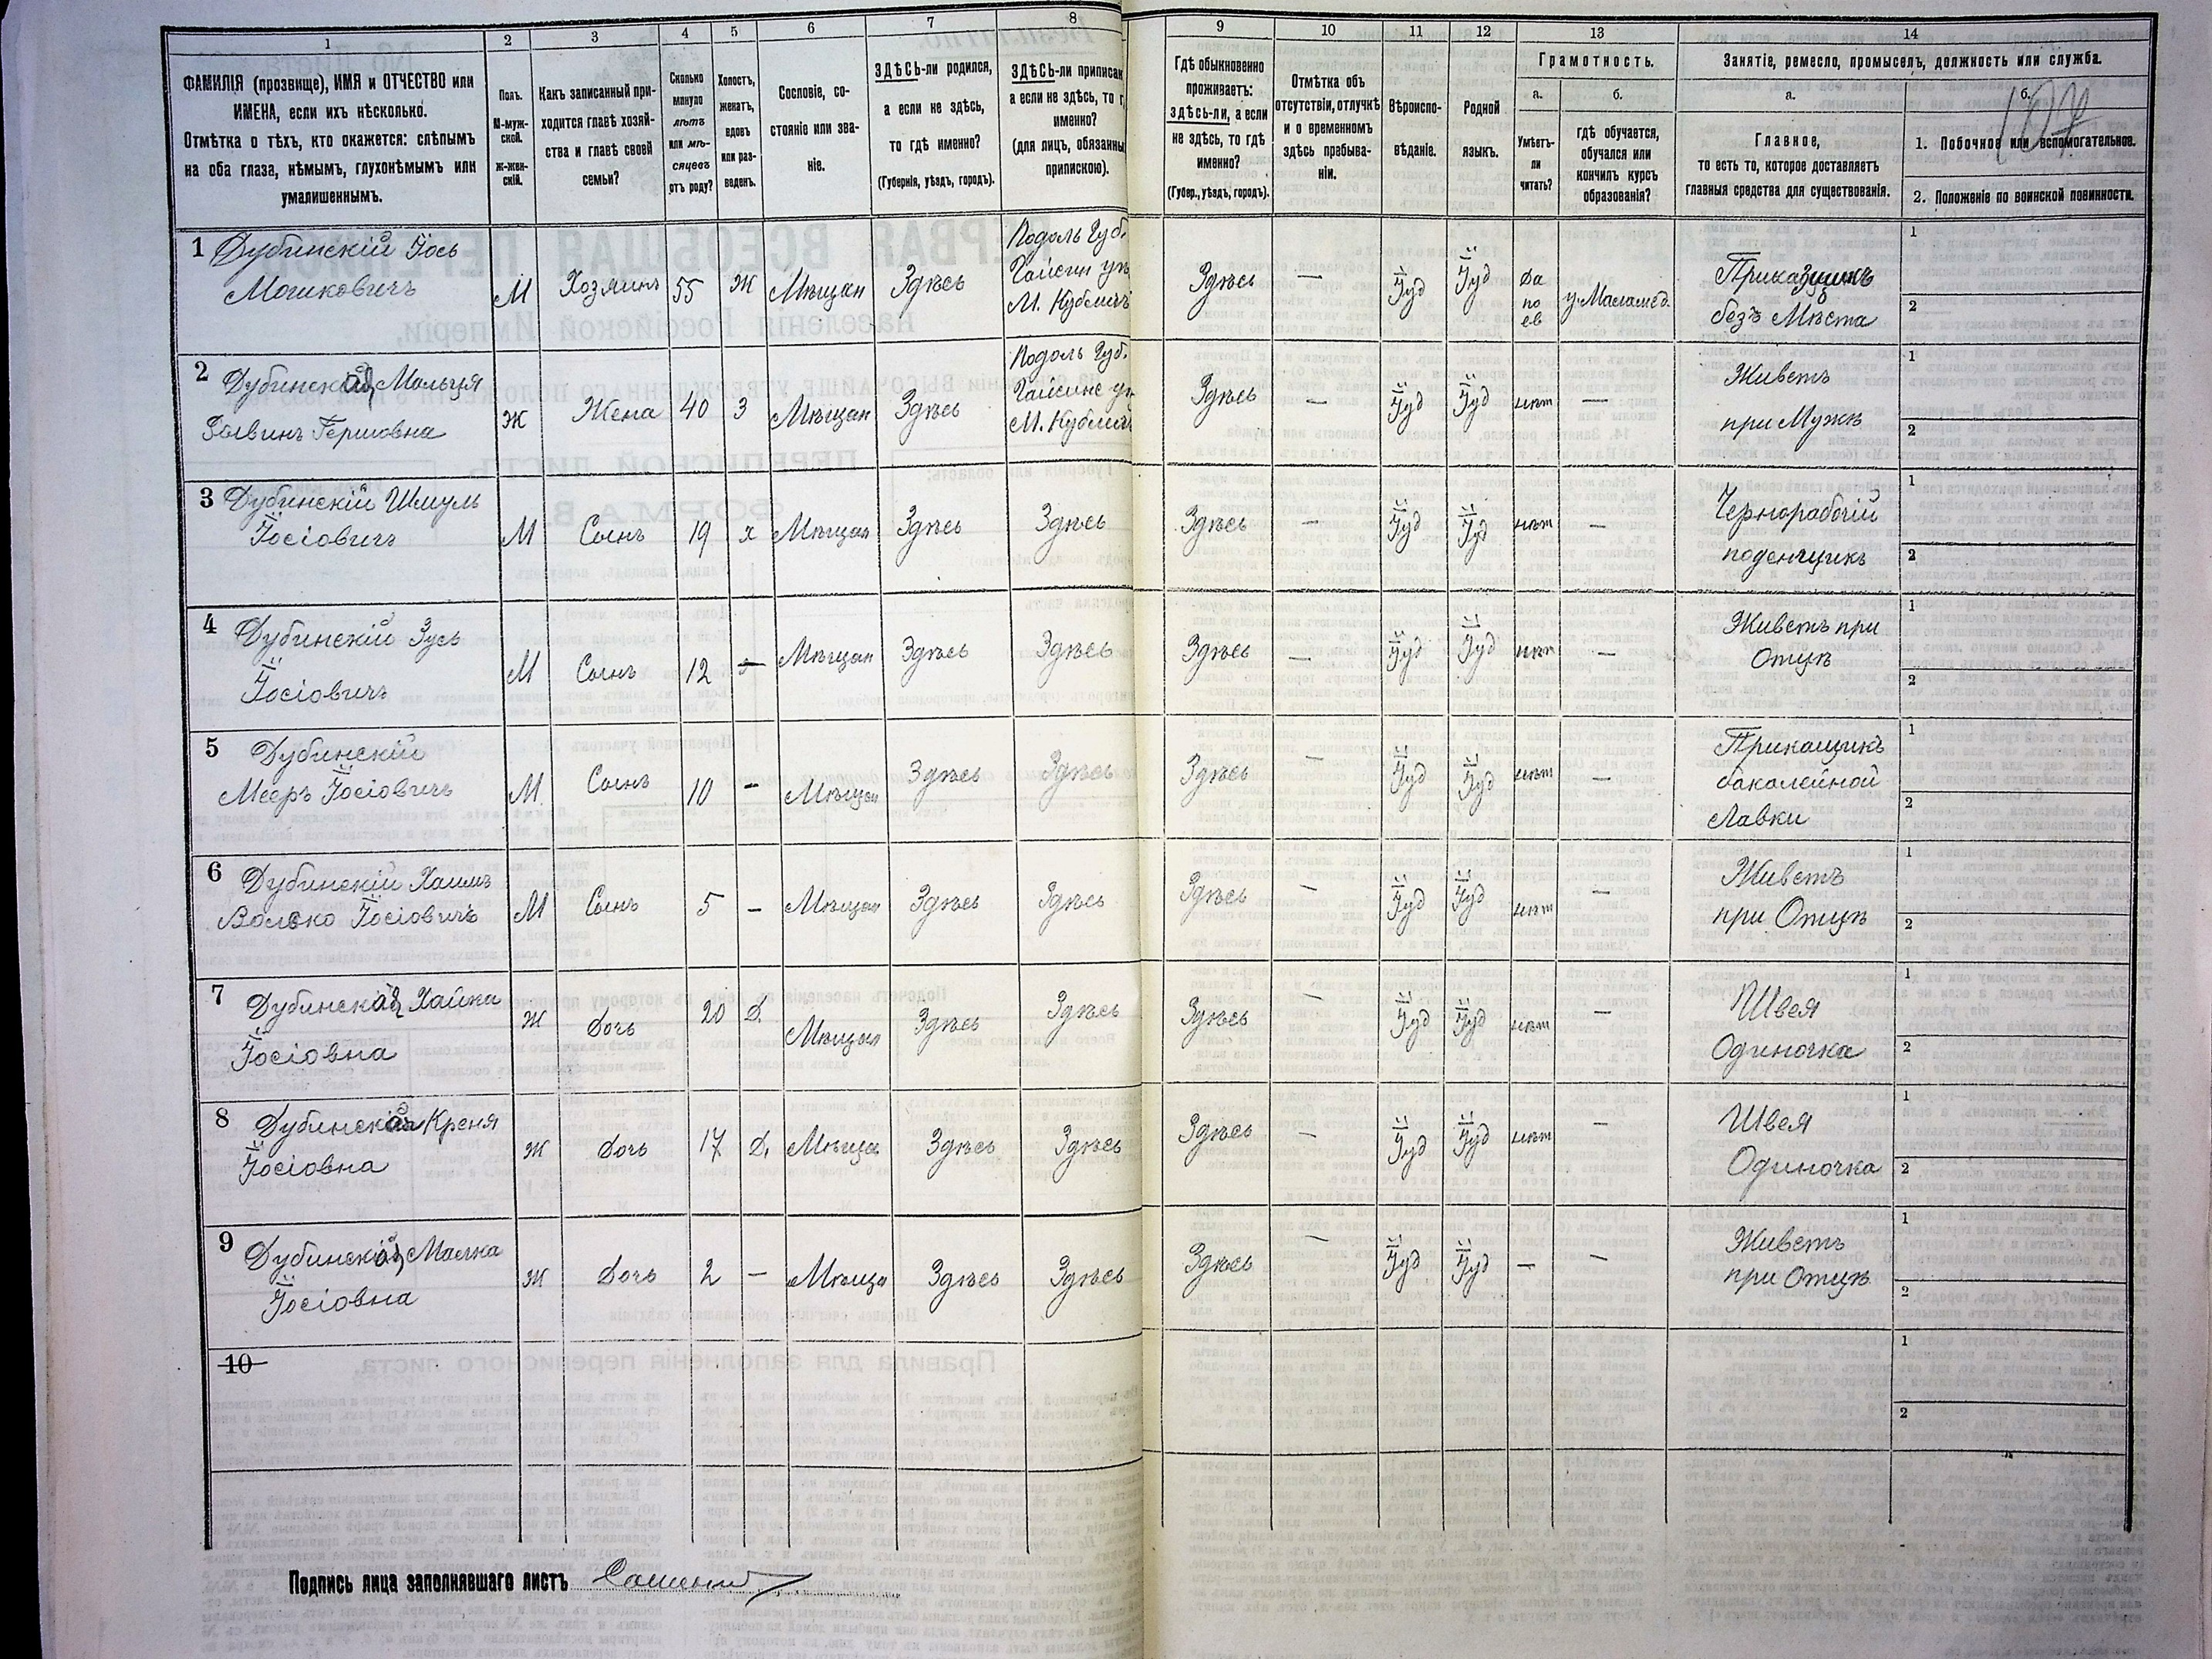 1 2 3 4 5 6 7 8 9 10 11 12 13 14
ФАМИЛІЯ (прозвище), ИМЯ и ОТЧЕСТВО или
ИМЕНА, если ихъ нѣсколько.
Отмѣтка о тѣхъ, кто окажется: слѣпымъ
на оба глаза, нѣмымъ, глухонѣмымъ или
умалишеннымъ.
Полъ.
М-муж-
ской.
ж-жен-
скій.
Какъ записанный при-
ходится главѣ хозяй-
ства и главѣ своей
семьи?
Сколько
минуло
лѣтъ
или мѣ-
сяцевъ
отъ роду?
Холостъ,
женатъ,
вдовъ
или раз-
веденъ.
Сословіе, со-
стояніе или зва-
ніе.
ЗДѢСЬ-ли родился,
а если не здѣсь,
то гдѣ именно?
(Губернія, уѣздъ, городъ).
ЗДѢСЬ-ли приписан
а если не здѣсь, то г
именно?
(для лицъ, обязанны
припискою).
Гдѣ обыкновенно
проживаетъ:
ЗДѢСЬ-ли, а если
не здѣсь, то гдѣ
именно?
(Губер., уѣздъ, городъ).
Отмѣтка объ
отсутствіи, отлучкѣ
и о временномъ
здѣсь пребыва-
ніи.
Вѣроиспо-
вѣданіе.
Родной
языкъ.
Грамотность.
а.
Умѣетъ-
ли
читать?
б.
гдѣ обучается,
обучался или
кончилъ курсъ
образованія?
Занятіе, ремесло, промыселъ, должность или служба.
а.
Главное,
то есть то, которое доставляетъ
главныя средства для существованія.
б.
1. Побочное или вспомогательное.
2. Положеніе по воинской повинности.
1 Дубинскій Іось
Мошковичъ
М
Хозяинъ
55
Ж
Мѣщан
Здѣсь
Подоль Губ.
Гайсин уѣ
М. Кублич
Здѣсь
—
Іуд
Іуд
Да
по
ев
у Меламед.
Приказщикъ
безъ Мѣста
1
2
2 Дубинская Мальця
Гершовна
Ж
Жена
40
З
Мѣщан
Здѣсь
Подоль Губ.
Гайсинс уѣ
М. Кублич
Здѣсь
—
Іуд
Іуд
нѣт
—
Живетъ
при Мужѣ
1
2
3 Дубинскій Шмуль
Іосіовичъ
М
Сынъ
19
х
Мѣщан
Здѣсь
Здѣсь
Здѣсь
—
Іуд
Іуд
нѣт
—
Чернорабочій
поденщикъ
1
2
4 Дубинскій Зусь
Іосіовичъ
М
Сынъ
12
—
Мѣщан
Здѣсь
Здѣсь
Здѣсь
—
Іуд
Іуд
нѣт
—
Живетъ при
Отцѣ
1
2
5 Дубинскій
Мееръ Іосіовичъ
М
Сынъ
10
-
Мѣщан
Здѣсь
Здѣсь
Здѣсь
—
Іуд
Іуд
нѣт
—
Прикащикъ
бакалейной
Лавки
1
2
6 Дубинскій Хаимъ
Волько Іосіовичъ
М
Сынъ
5
-
Мѣщан
Здѣсь
Здѣсь
Здѣсь
—
Іуд
Іуд
нѣт
—
Живетъ
при Отцѣ
1
2
7 Дубинская Хайка
Іосіовна
Ж
Дочь
20
Д.
Мѣщан
Здѣсь
Здѣсь
Здѣсь
—
Іуд
Іуд
нѣт
—
Швея
Одиночка
1
2
8 Дубинская Креня
Іосіовна
Ж
Дочь
17
Д.
Мѣща
Здѣсь
Здѣсь
Здѣсь
—
Іуд
Іуд
нѣт
—
Швея
Одиночка
1
2
9 Дубинская Малка
Іосіовна
Ж
Дочь
2
—
Мѣща
Здѣсь
Здѣсь
Здѣсь
—
Іуд
Іуд
—
—
Живетъ
при Отцѣ
1
2
10
1
2
Подпись лица заполнявшаго листъ